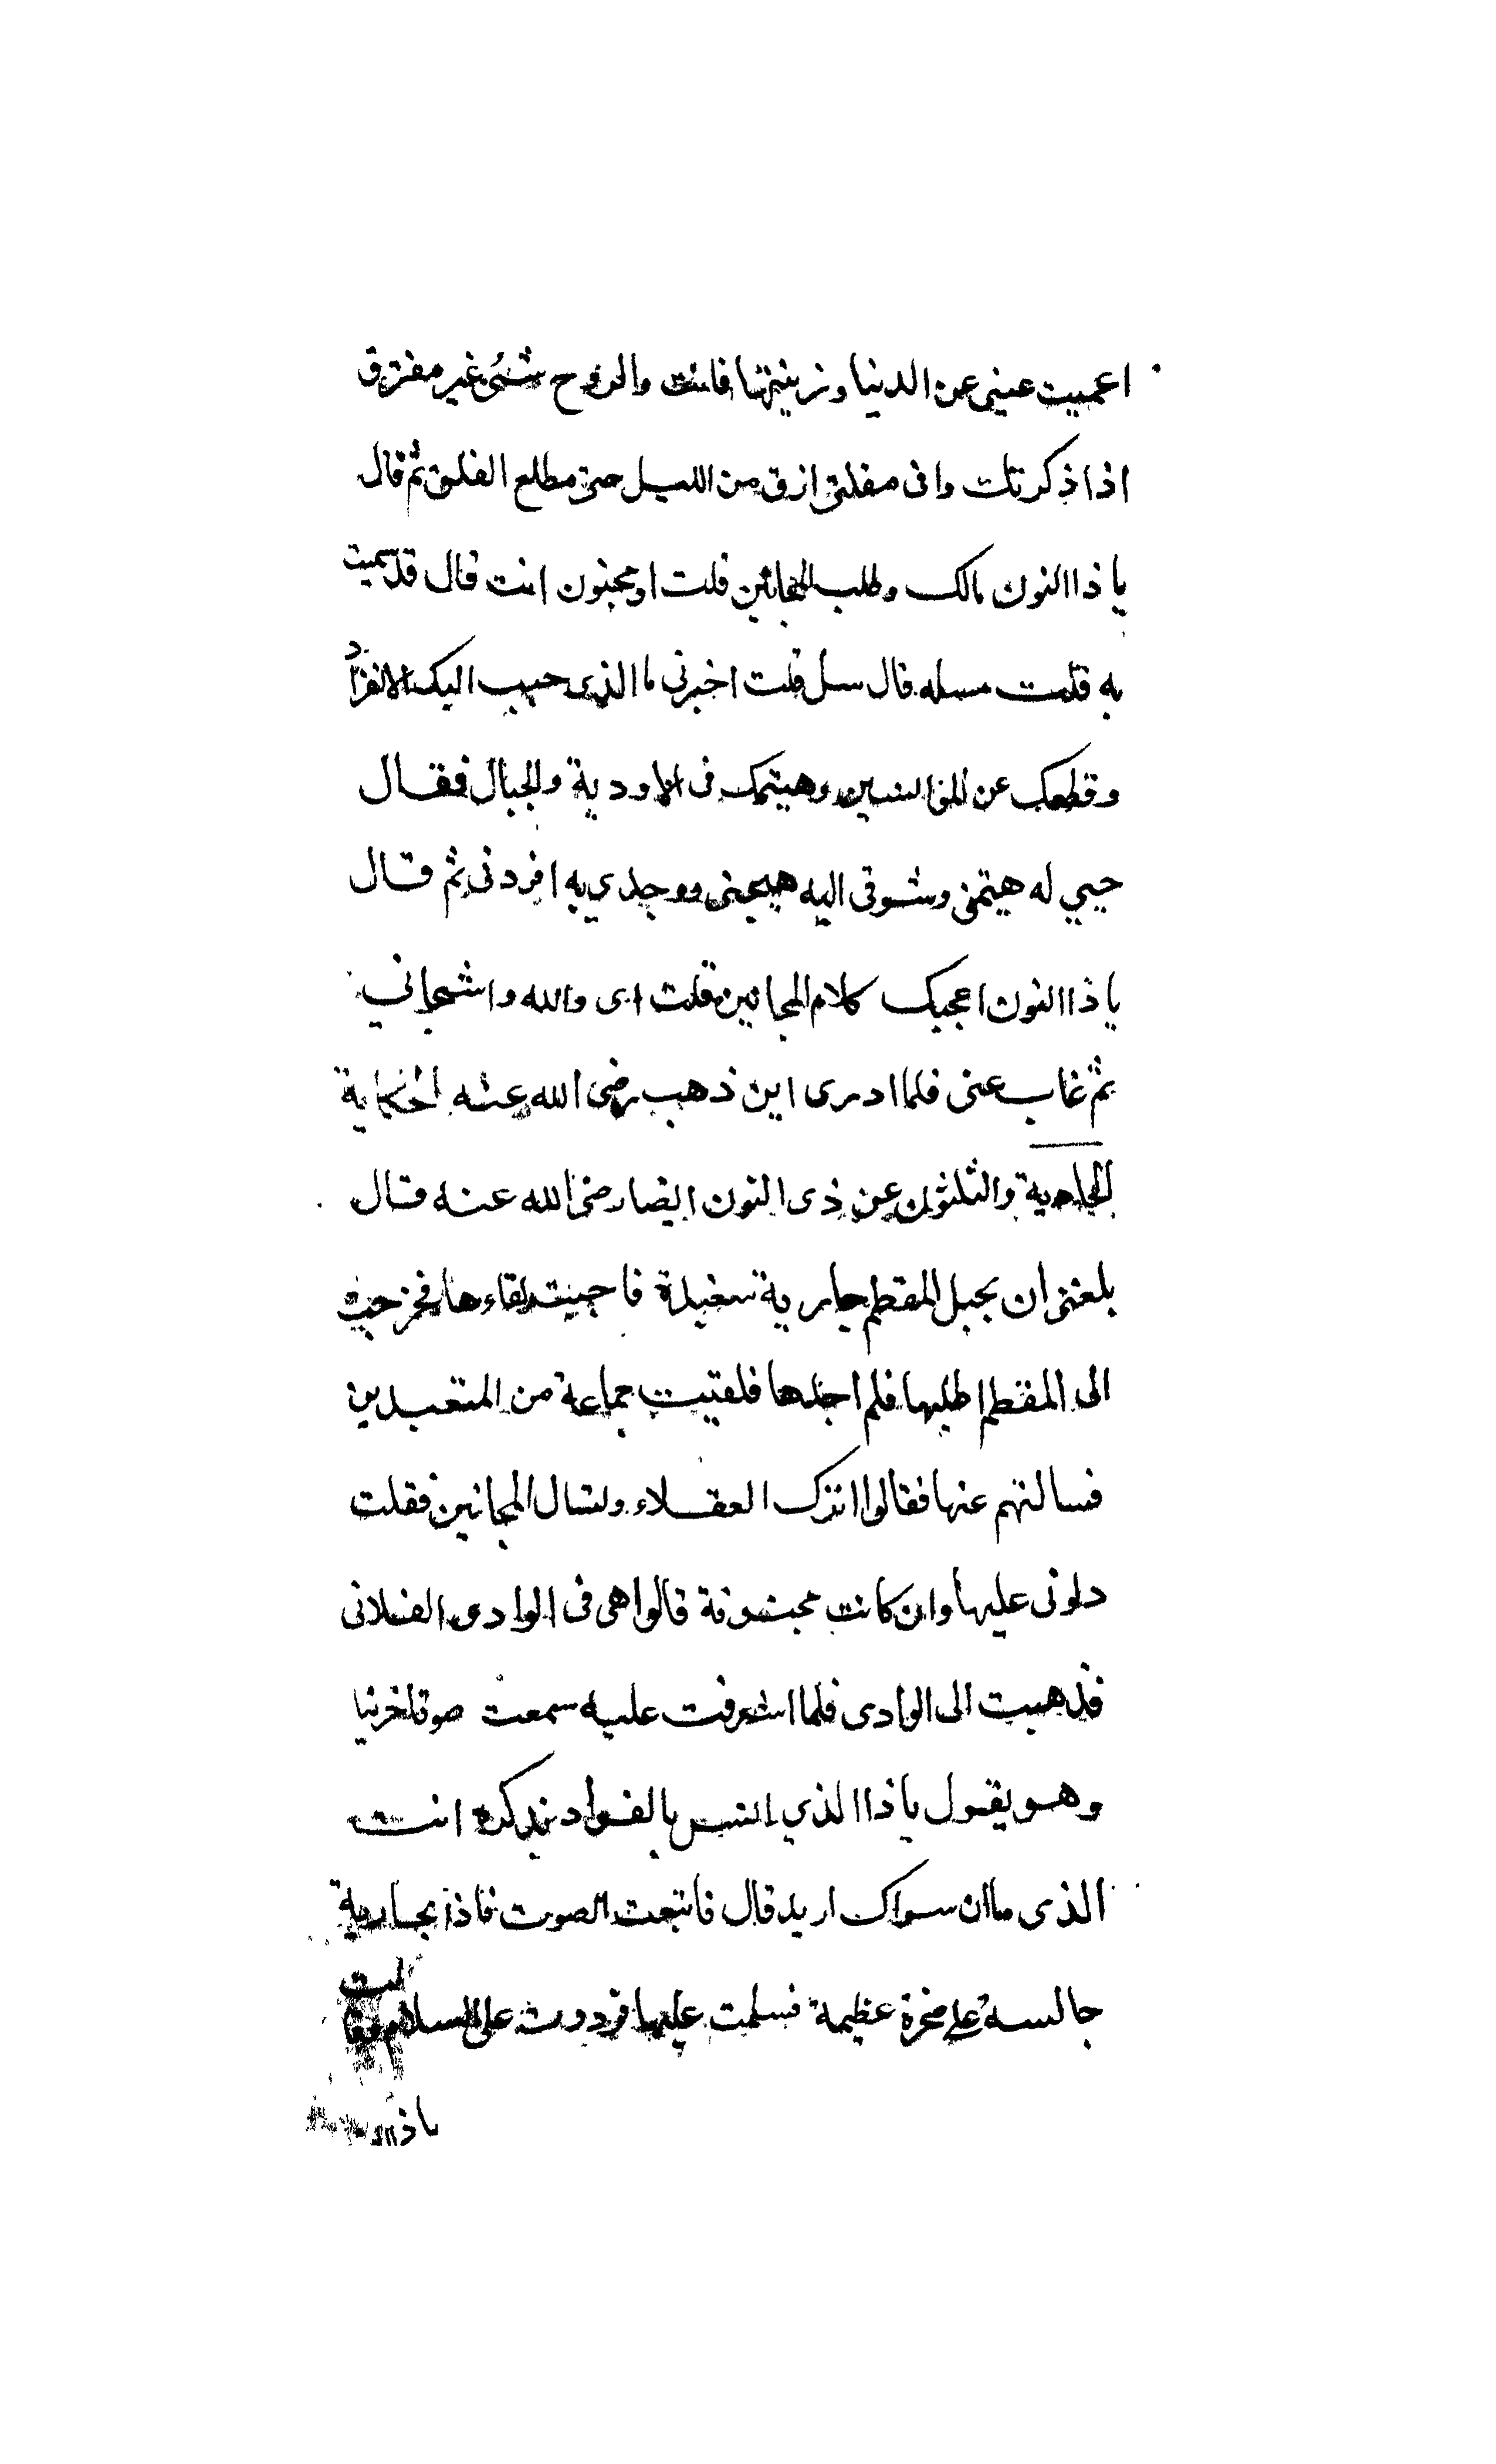 اعميت عيني عن الدنيا وزينتها فانت والروح شئ غير مفترق
اذا ذكرتك وافى مقلتى ارق من الليل حتى مطلع الفلق ثم قال
يا ذا النون مالك وطلب المجانين قلت او مجنون انت قال قد سميت
به قلت مسله قال سل قلت اخبرنى ما الذى حبب اليك الانفراد
وقطعك عن المؤانسين وهيتمك فى الاودية والجبال فقال
حبي له هيتمنى وشوقى اليه هيجنى ووجدي به افردنى ثم قال
يا ذا النون اعجبك كلام المجانين قلت اى والله واشجاني
ثم غاب عنى فلما ادرى اين ذهب رضى الله عنه الحكاية
الحادية والثلثون عن ذى النون ايضا رضى الله عنه قال
بلغنى ان بجبل المقطم جارية متعبدة فاحببت لقاءها فخرجت
الى المقطم اطلبها فلم اجدها فلقيت جماعة من المتعبدين
فسالتهم عنها فقالوا اتترك العقلاء وتسال المجانين فقلت
دلونى عليها وان كانت مجنونة قالوا هى فى الوادى الفلانى
فذهبت الى الوادى فلما اشرفت عليه سمعت صوتا حزينا
وهو يقول يا ذا الذي انس بالفواد بذكره انت
الذى ما ان سواك اريد قال فاتبعت الصوت فاذا بجارية
جالسة على صخرة عظيمة فسلمت عليها فردت على السلام وقالت
يا ذا